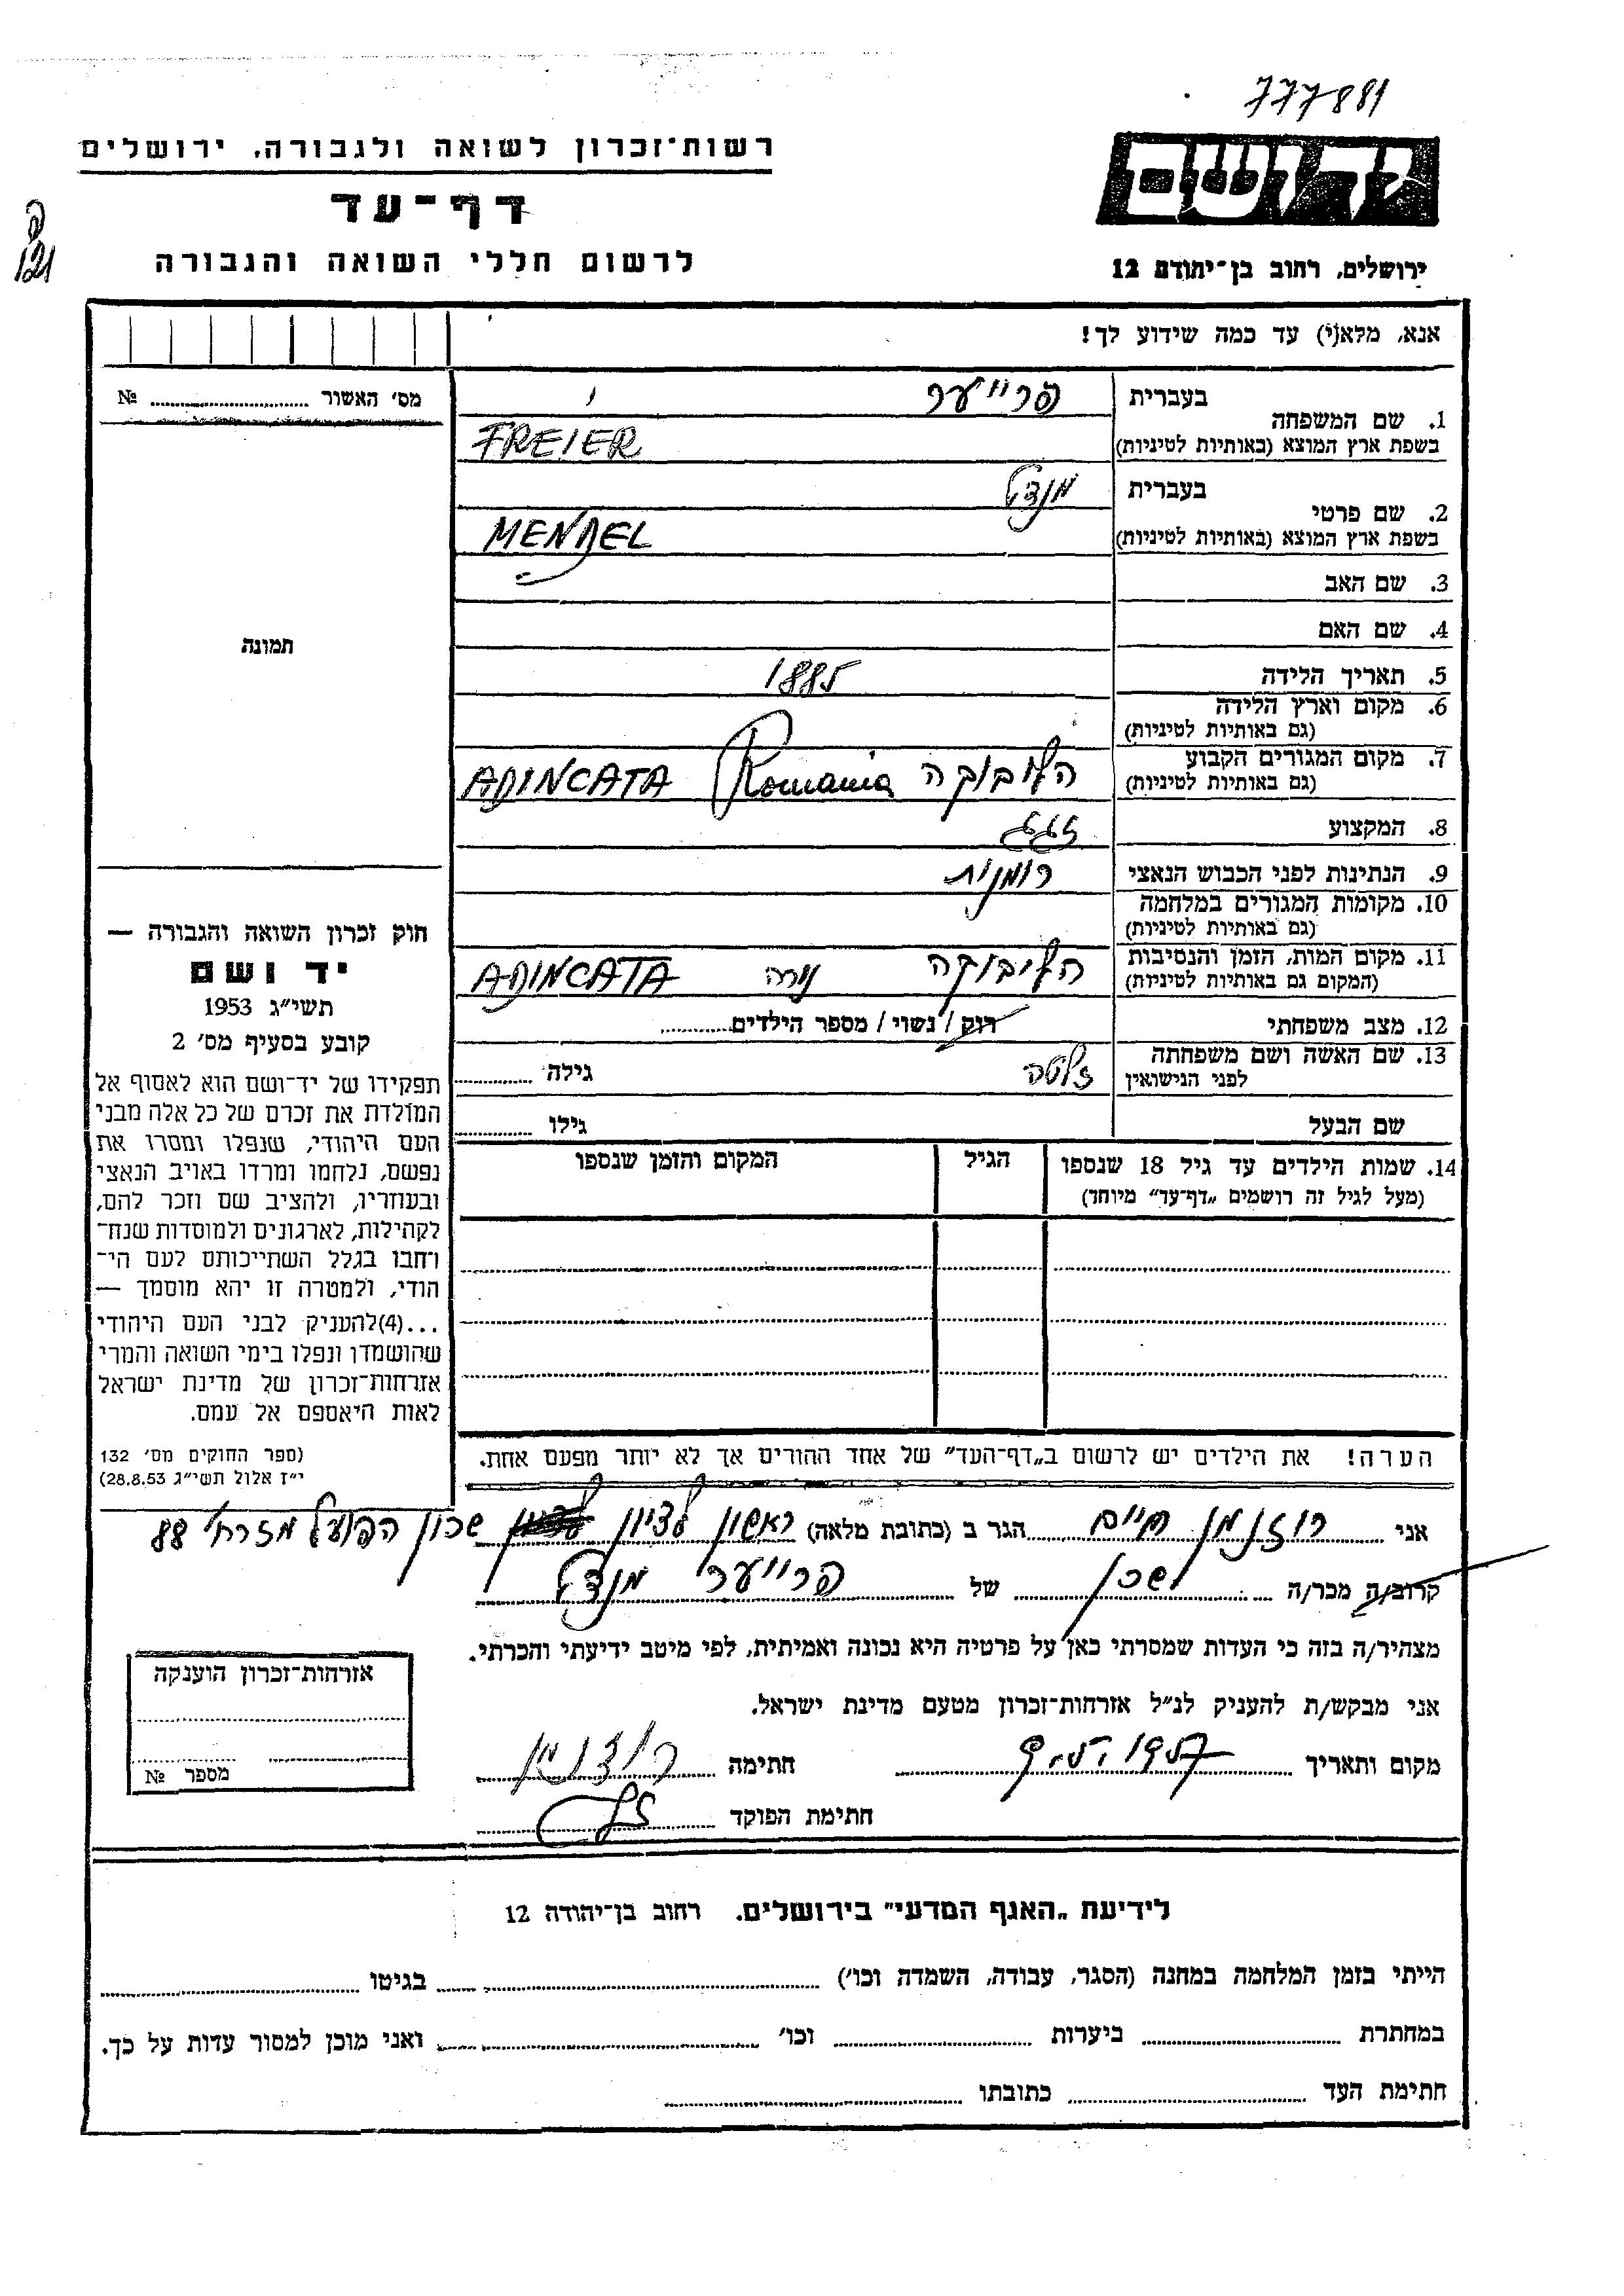 777881
רשות־זכרון לשואה ולגבורה, ירושלים
דף־עד
לרשום חללי השואה והגבורה
יד ושם
ירושלים, רחוב בן־יהודה 12
אנא, מלא(י) עד כמה שידוע לך!
מס' האשור № 
תמונה
1. שם המשפחה בעברית פרייער
בשפת ארץ המוצא (באותיות לטיניות) FREIER
2. שם פרטי בעברית מנדל
בשפת ארץ המוצא (באותיות לטיניות) MENDEL
3. שם האב
4. שם האם
5. תאריך הלידה 1885
6. מקום וארץ הלידה
(גם באותיות לטיניות)
7. מקום המגורים הקבוע הליבוקה Romania ADINCATA
(גם באותיות לטיניות)
8. המקצוע זגג
9. הנתינות לפני הכבוש הנאצי רומנית
10. מקומות המגורים במלחמה
(גם באותיות לטיניות)
11. מקום המות, הזמן והנסיבות הליבוקה נורה ADINCATA
(המקום גם באותיות לטיניות)
12. מצב משפחתי רוק / נשוי / מספר הילדים
13. שם האשה ושם משפחתה זלטה גילה
לפני הנישואין
שם הבעל גילו
14. שמות הילדים עד גיל 18 שנספו הגיל המקום והזמן שנספו
(מעל לגיל זה רושמים „דף־עד" מיוחד)
הערה! את הילדים יש לרשום ב„דף־העד" של אחד ההורים אך לא יותר מפעם אחת.
חוק זכרון השואה והגבורה —
יד ושם
תשי״ג 1953
קובע בסעיף מס' 2
תפקידו של יד־ושם הוא לאסוף אל
המולדת את זכרם של כל אלה מבני
העם היהודי, שנפלו ומסרו את
נפשם, נלחמו ומרדו באויב הנאצי
ובעוזריו, ולהציב שם וזכר להם,
לקהילות, לארגונים ולמוסדות שנח־
רחבו בגלל השתייכותם לעם הי־
הודי, ולמטרה זו יהא מוסמך —
...(4)להעניק לבני העם היהודי
שהושמדו ונפלו בימי השואה והמרי
אזרחות־זכרון של מדינת ישראל
לאות היאספם אל עמם.
(ספר החוקים מס' 132
י״ז אלול תשי״ג 28.8.53)
אני רוזנמן חיים הגר ב (כתובת מלאה) ראשון לציון שכון הפועל מזרחי 88
קרוב/ה מכר/ה שכן של פרייער מנדל
מצהיר/ה בזה כי העדות שמסרתי כאן על פרטיה היא נכונה ואמיתית, לפי מיטב ידיעתי והכרתי.
אני מבקש/ת להעניק לנ״ל אזרחות־זכרון מטעם מדינת ישראל.
מקום ותאריך חתימה רוזנמן
חתימת הפוקד
אזרחות־זכרון הוענקה
מספר №
לידיעת „האגף המדעי" בירושלים. רחוב בן־יהודה 12
הייתי בזמן המלחמה במחנה (הסגר, עבודה, השמדה וכו') בגיטו
במחתרת ביערות וכו' ואני מוכן למסור עדות על כך.
חתימת העד כתובתו